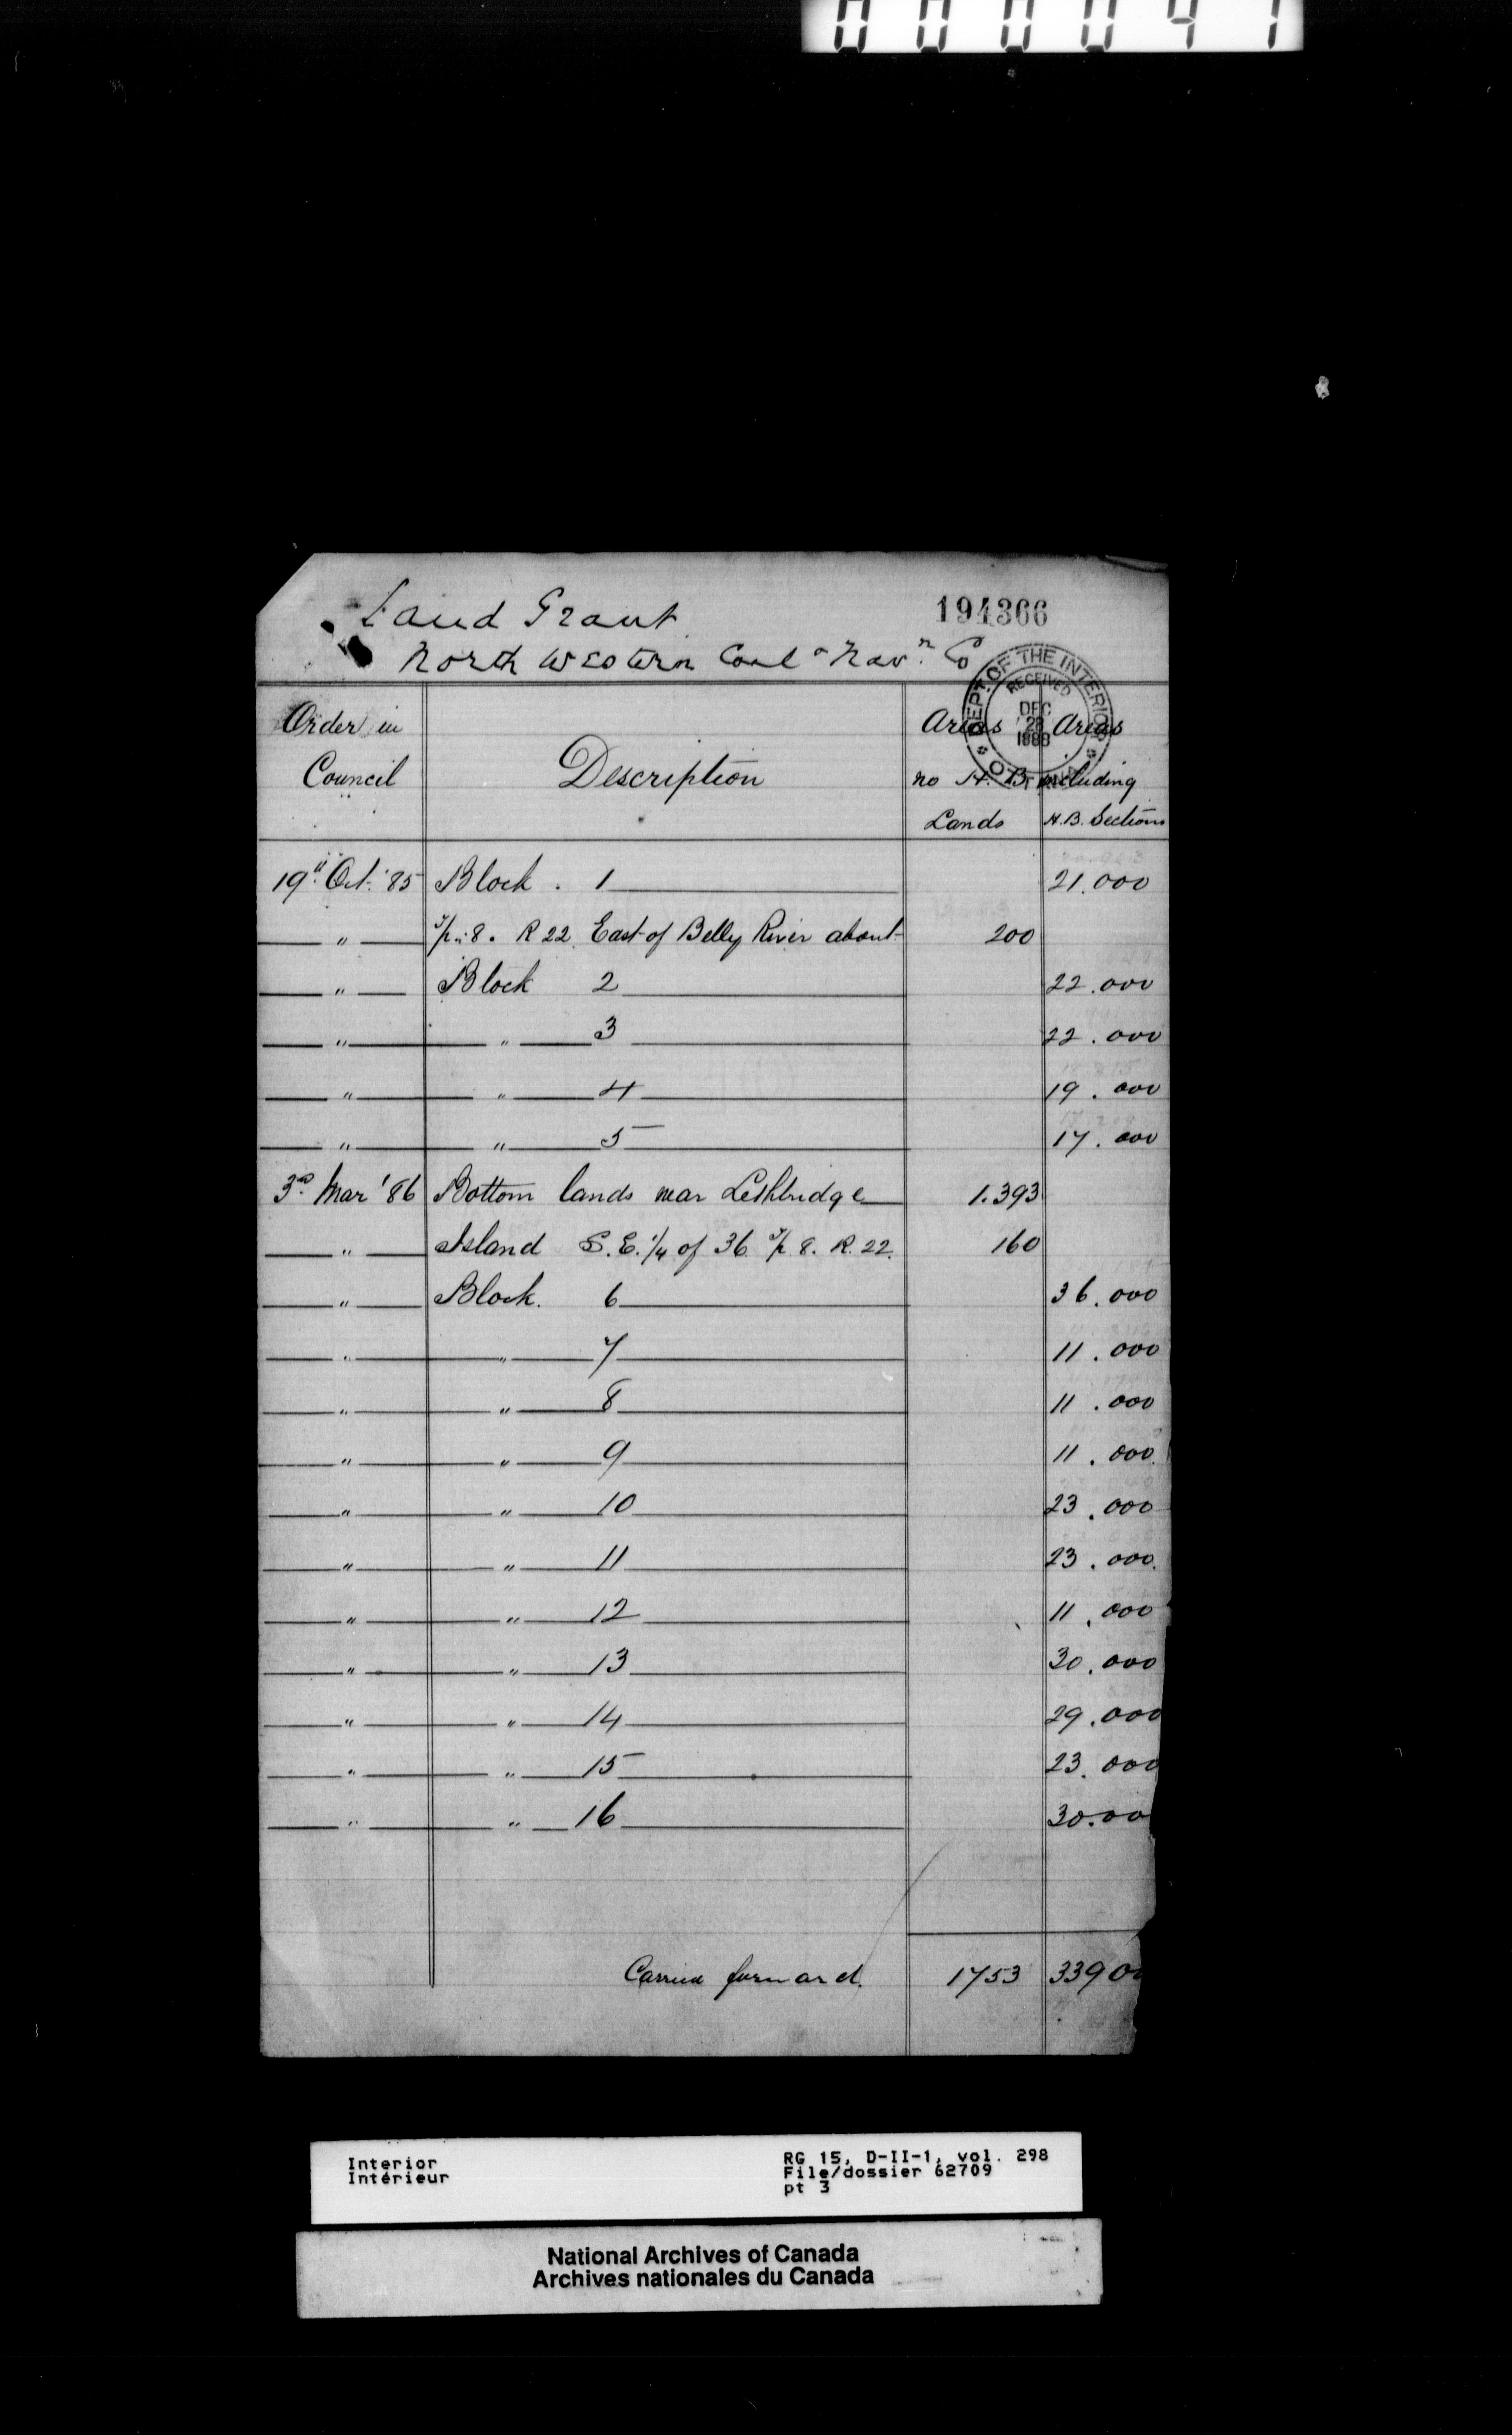 000041
Land Grant
194366
North Western Coal & Navn. Co
DEPT. OF THE INTERIOR
RECEIVED
DEC
28
1888
OTTAWA
Order in Council
Description
Areas no H. B. Lands
Areas including H.B. Sections
19" Oct. '85 Block . 1 21.000
" Tp. 8. R 22 East of Belly River about 200
" Block 2 22.000
" " 3 22.000
" " 4 19.000
" " 5 17.000
3rd Mar '86 Bottom lands near Lethbridge 1.393
" Island S.E. 1/4 of 36 Tp 8. R. 22. 160
" Block. 6 36.000
" " 7 11.000
" " 8 11.000
" " 9 11.000
" " 10 23.000
" " 11 23.000
" " 12 11.000
" " 13 30.000
" " 14 29.000
" " 15 23.000
" " 16 30.00
Carried forward. 1753 33900
Interior
Intérieur
RG 15, D-II-1, vol. 298
File/dossier 62709
pt 3
National Archives of Canada
Archives nationales du Canada